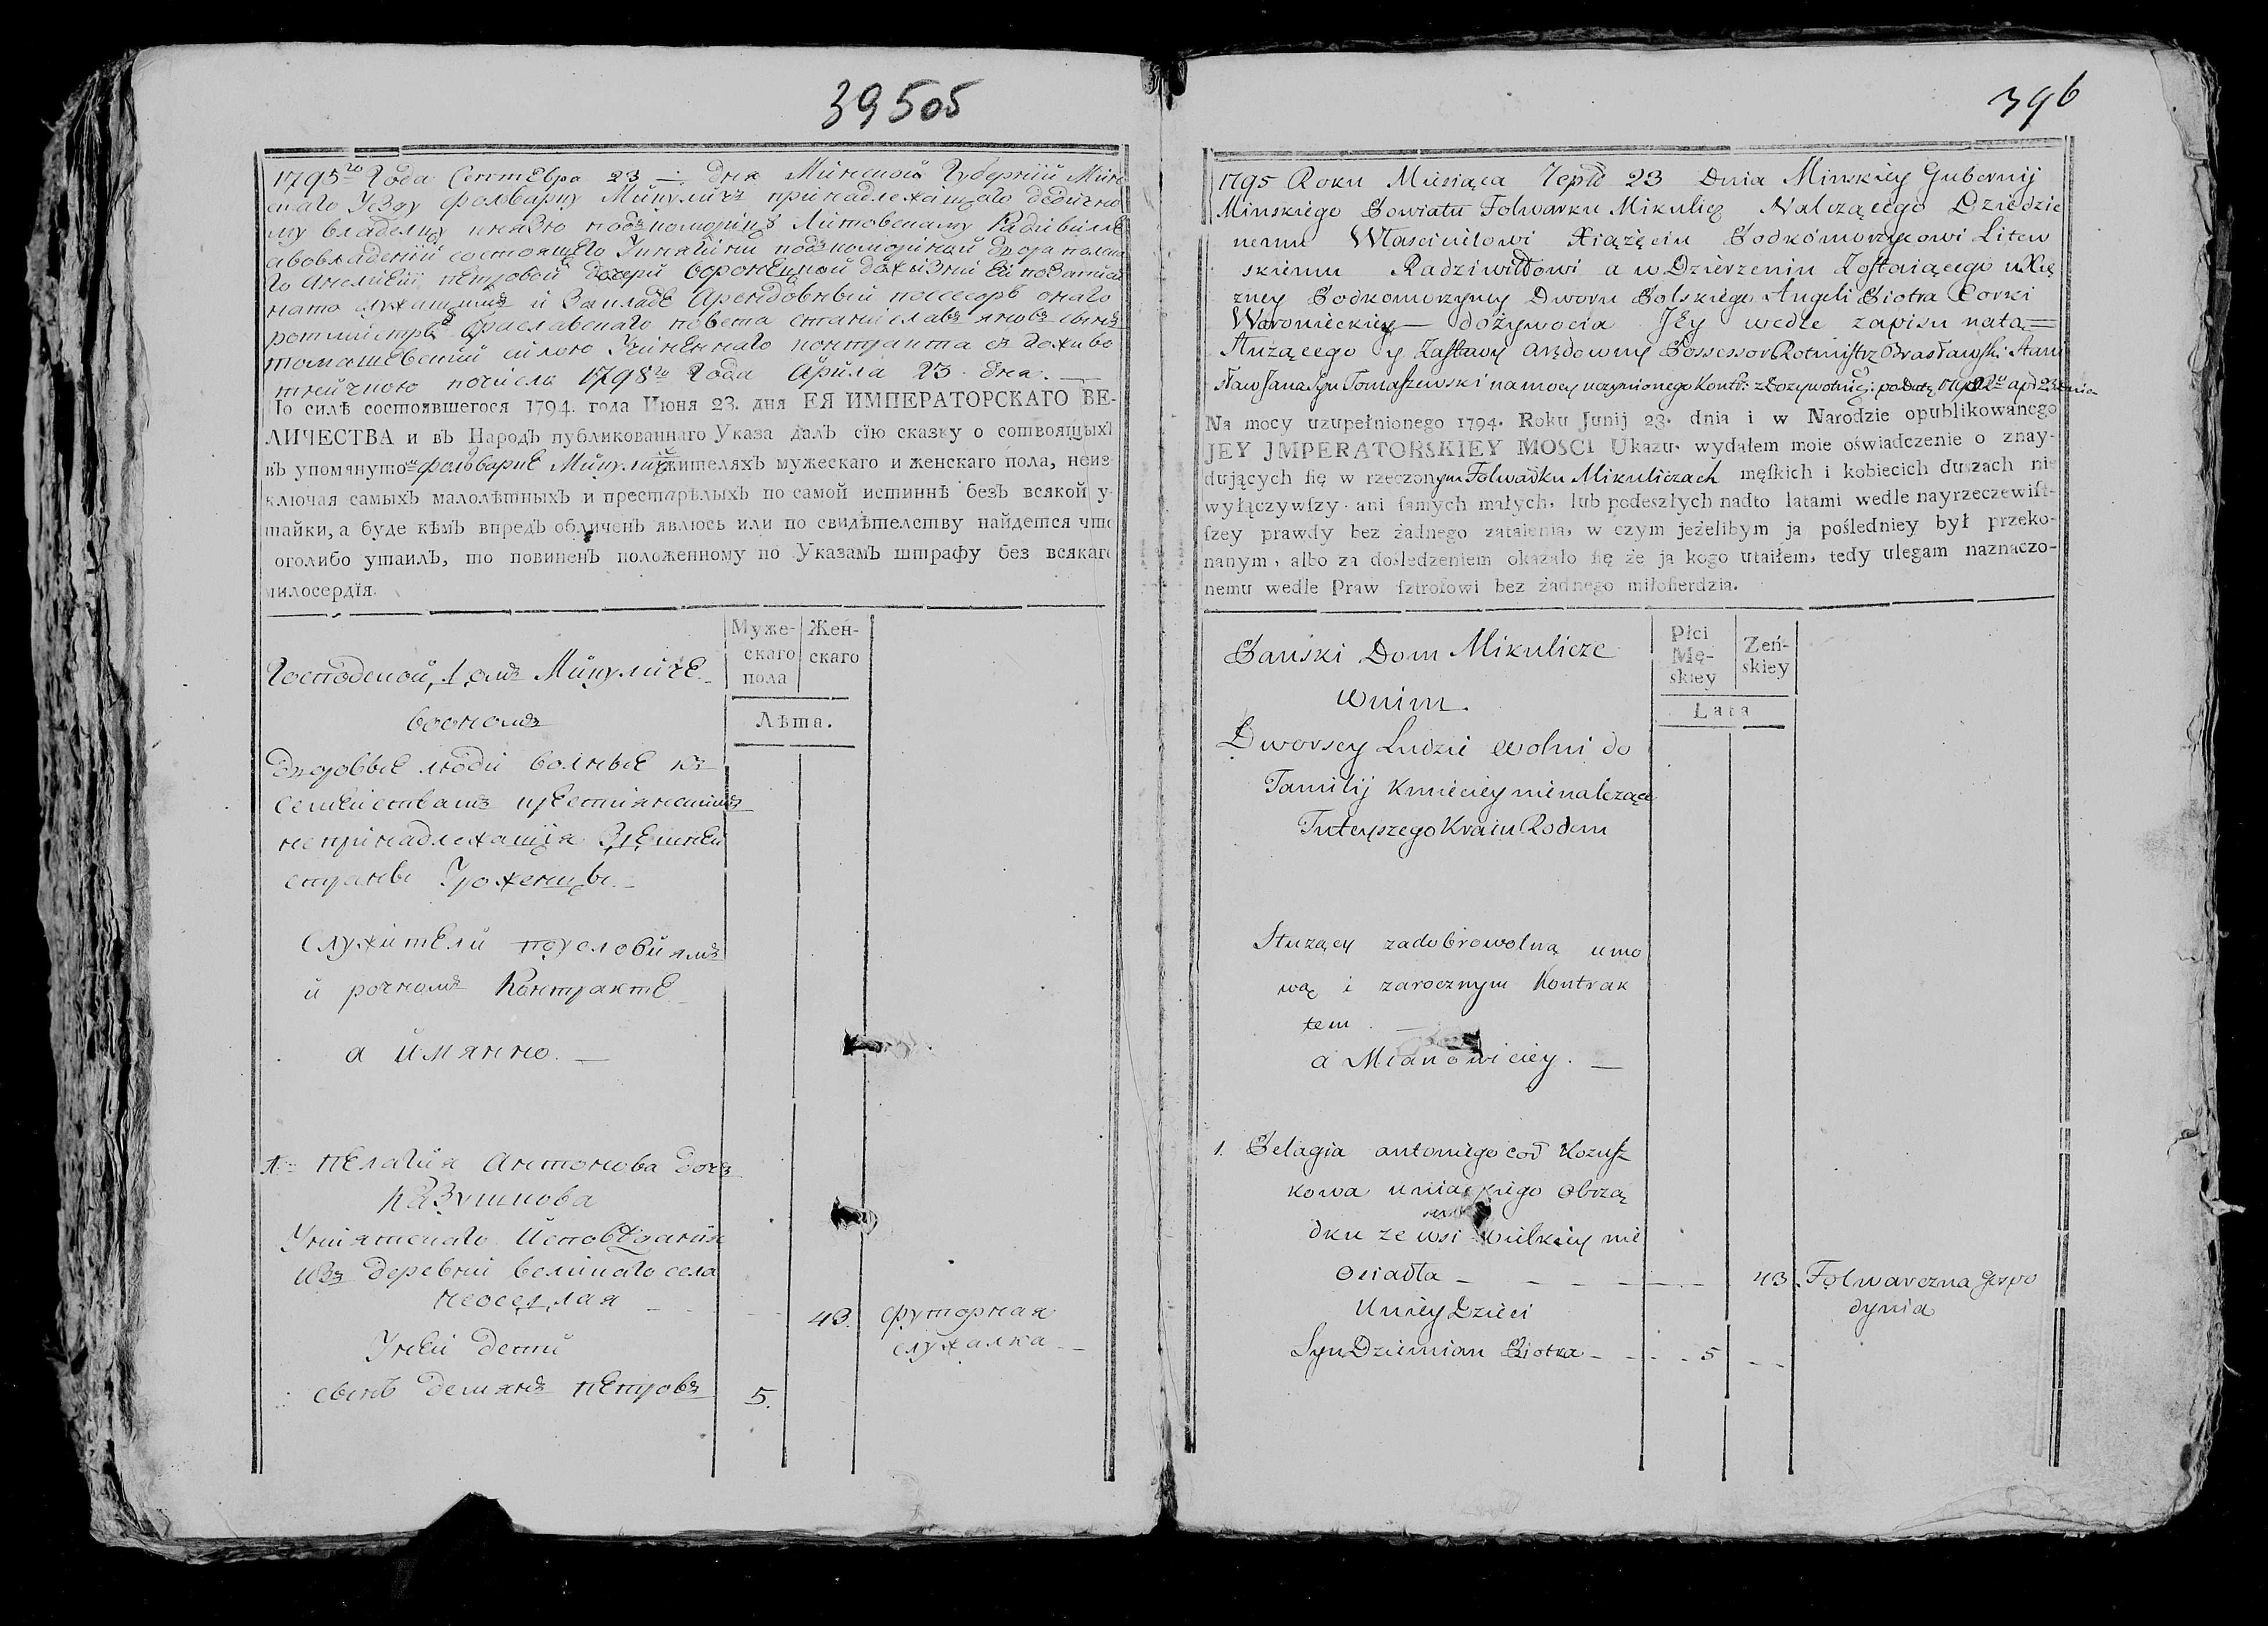 395об
1795го Года Сентебра 23 дня Минской Губернии Мин
скаго Уезду фольварку Микуличъ принадлежащаго дедично
му владелцу князю подкоморому Литовскому Радивилле
а во владении состоящего Княгини подкоморыной двора полска
го Анелией петровой дочери воронецкой
ротмистръ браславскаго повета станиславъ яновъ сынъ
томашевский силою Учиненнаго контракта
по числъ 1798го Года Априла 23 дня.
По силѣ состоявшегося 1794. года Июня 23. дня ЕЯ ИМПЕРАТОРСКАГО ВЕ-
ЛИЧЕСТВА и въ Народъ публикованнаго Указа далъ сїю сказку о состоящихъ
въ упомянутом фольварке Микуличе жителяхъ мужескаго и женскаго пола, неиз-
ключая самыхъ малолѣтныхъ и престарѣлыхъ по самой истиннѣ безъ всякой у-
тайки, а буде кѣмъ впредъ обличенъ явлюсь или по свидѣтелству найдется что
оголибо утаилъ, то повиненъ положенному по Указамъ штрафу без всякаго
милосердїя.
Муже-
скаго
пола
Жен-
скаго
Лѣта.
Господской домъ Микуличе
воономъ
Дворовые люди волные къ
семействамъ крестянскимъ
непринадлежащия Здешней
страны Уроженцы.
Служители по условиямъ
и рочномъ Контракте
а имянно.
Пелагия Антонова дочъ
казушкова
Униятскаго Исповедания
изъ деревни великаго села
неоседлая 43. футорная
служалка
Унеи дети
сынъ демянъ петровъ 5.
396
1795 Roku Miesiąca 7epa 23 Dnia Minskiey Gubernij
Minskiego Powiatu Folwarku Mikulicz Nalezącego Dziedzic
nemu Włascicielowi Xiążęciu Podkomorzycowi Litew
skiemu Radziwiłłowi a w Dzierzeniu Zostaiącego u Xię
zney Podkomorzyney Dworu Polskiego Angeli Piotra Corki
Woronieckiey dożywocia Jey wedle zapisu nata
służącego y Zastawy arędowny Possessor Rotmistrz Brasławski Stani
sław Jana Syn Tomaszewski na mocy uczynionego Kontr:
Na mocy uzupełnionego 1794. Roku Junij 23. dnia i w Narodzie opublikowanego
JEY JMPERATORSKIEY MOSCI Ukazu. wydałem moie oświadczenie o znay-
dujących ſię w rzeczonym Folwarku Mikuliczach męſkich i kobiecich duszach nie
wyłączywſzy ani ſamych małych, lub podeszłych nadto latami wedle nayrzeczewiſt-
ſzey prawdy bez żadnego zataienia, w czym jeżelibym ja poſledniey był przeko-
nanym, albo za dośledzeniem okazało ſię że ja kogo utaiłem, tedy ulegam naznaczo-
nemu wedle Praw ſztrofowi bez żadnego miłoſierdzia.
Płci
Mę-
skiey
Zeń-
skiey
Lata
Panski Dom Mikulicze
w nim
Dworscy Ludzie wolni do
Familij Kmieciey nienalezące
Tuteyszego Kraiu Rodem
Służący za dobrowolną umo
wą i zarocznym Kontrak
tem.
a Mianowiciey.
1. Pelagia antoniego cor Kozusz
kowa uniackiego Obrzą
dku ze wsi wielkiey nie
osiadła 43 Folwarczna Gospo
dynia
U niey Dzieci
Syn Dziemian Piotra 5